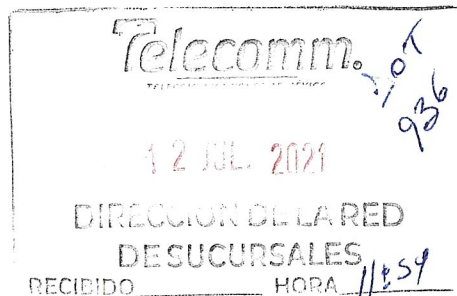 Telecomm.
936
12 JUL. 2021
DIRECCION DE LA RED
DE SUCURSALES
RECIBIDO HORA 11:54